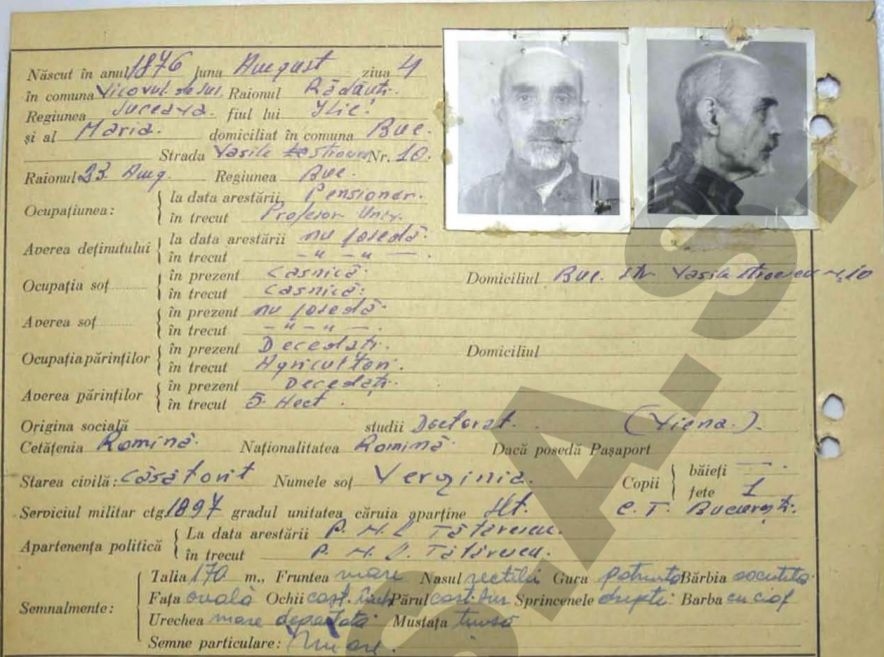 Născut în anul 1876 luna August ziua 4
în comuna Vicovul de Sus, Raionul Rădăuți.
Regiunea Suceava. fiul lui Ilie!
și al Maria. domiciliat în comuna Buc.
Strada Vasile Stroescu Nr. 10.
Raionul 23 Aug. Regiunea Buc.
Ocupațiunea: la data arestării Pensionar.
în trecut Profesor Univ.
Averea deținutului la data arestării nu posedă.
în trecut – " – " —
Ocupația soț în prezent Casnică. Domiciliul Buc. str. Vasile Stroescu nr. 10
în trecut Casnică.
Averea soț în prezent nu posedă.
în trecut – " – " —.
Ocupația părinților în prezent Decedați. Domiciliul
în trecut Agricultori.
Averea părinților în prezent Decedați.
în trecut 5 Hect.
Origina socială studii Doctorat. (Viena.).
Cetățenia Romînă. Naționalitatea Romînă. Dacă posedă Pașaport
Starea civilă: Căsătorit Numele soț Verginia. Copii băieți —.
fete 1
Serviciul militar ctg. 1897 gradul unitatea căruia aparține C. T. București.
Apartenența politică La data arestării P. N. L Tătărescu.
în trecut P. N. L. Tătărescu.
Semnalmente: Talia 170 m., Fruntea mare Nasul Gura potrivită Bărbia ascuțită
Fața ovală Ochii cast. Părul cast. Sprincenele drepte Barba cu cioc
Urechea mare depărtată Mustața tunsă
Semne particulare: Nu are.
C.N.S.A.S.